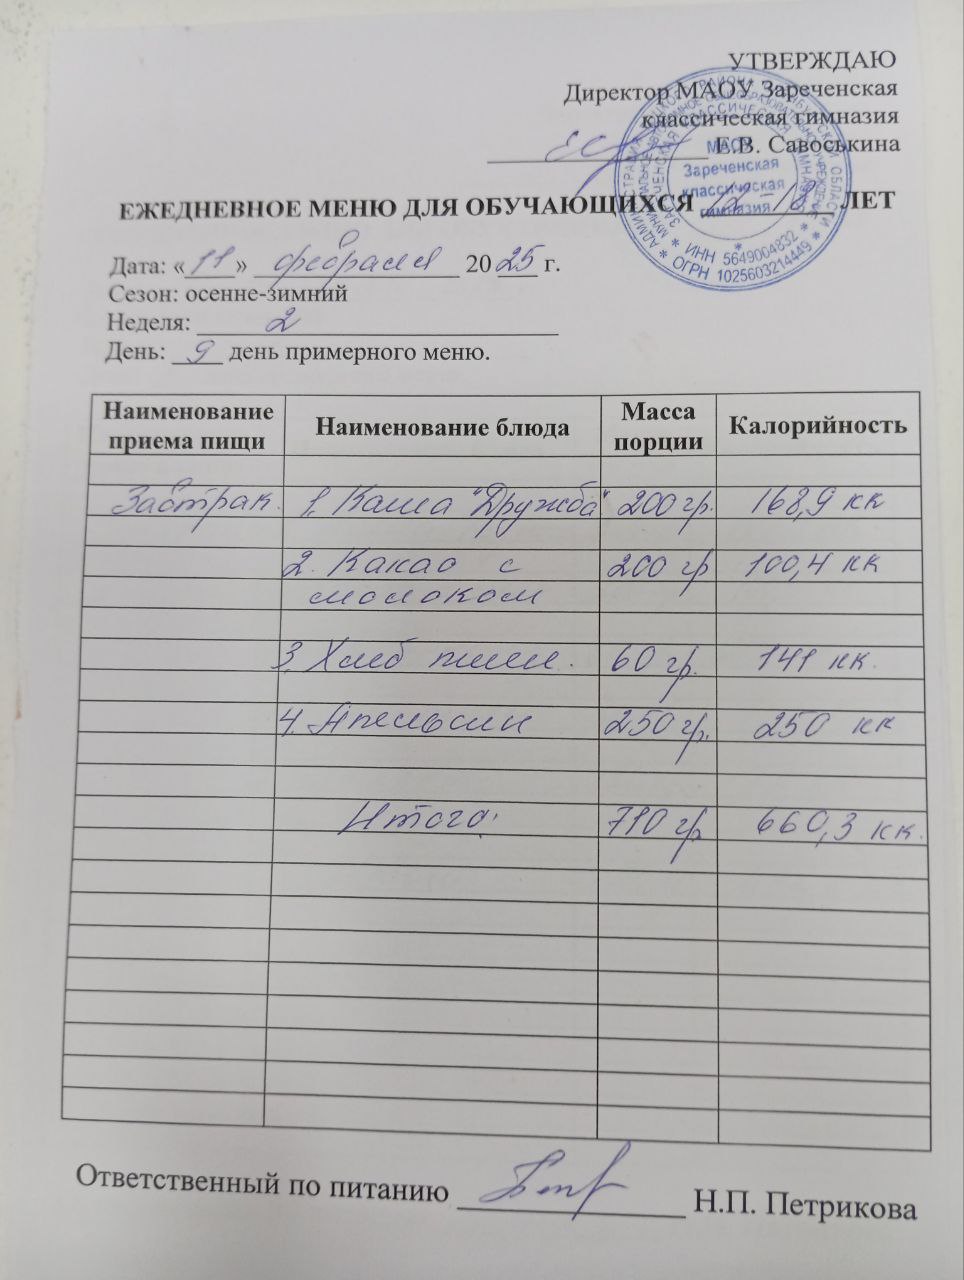 УТВЕРЖДАЮ
Директор МАОУ Зареченская
классическая гимназия
Е.В. Савоськина
МАОУ
Зареченская
классическая
гимназия
* ИНН 5649004832 *
* ОГРН 1025603214449 *
ЕЖЕДНЕВНОЕ МЕНЮ ДЛЯ ОБУЧАЮЩИХСЯ 12-18 ЛЕТ
Дата: «11» февраля 2025 г.
Сезон: осенне-зимний
Неделя: 2
День: 9 день примерного меню.
Наименование приема пищи Наименование блюда Масса порции Калорийность
Завтрак 1. Каша "Дружба" 200 гр. 168,9 кк
2. Какао с 200 гр 100,4 кк
молоком
3. Хлеб пшен. 60 гр. 141 кк.
4. Апельсин 250 гр. 250 кк
Итого: 710 гр 660,3 кк.
Ответственный по питанию Н.П. Петрикова